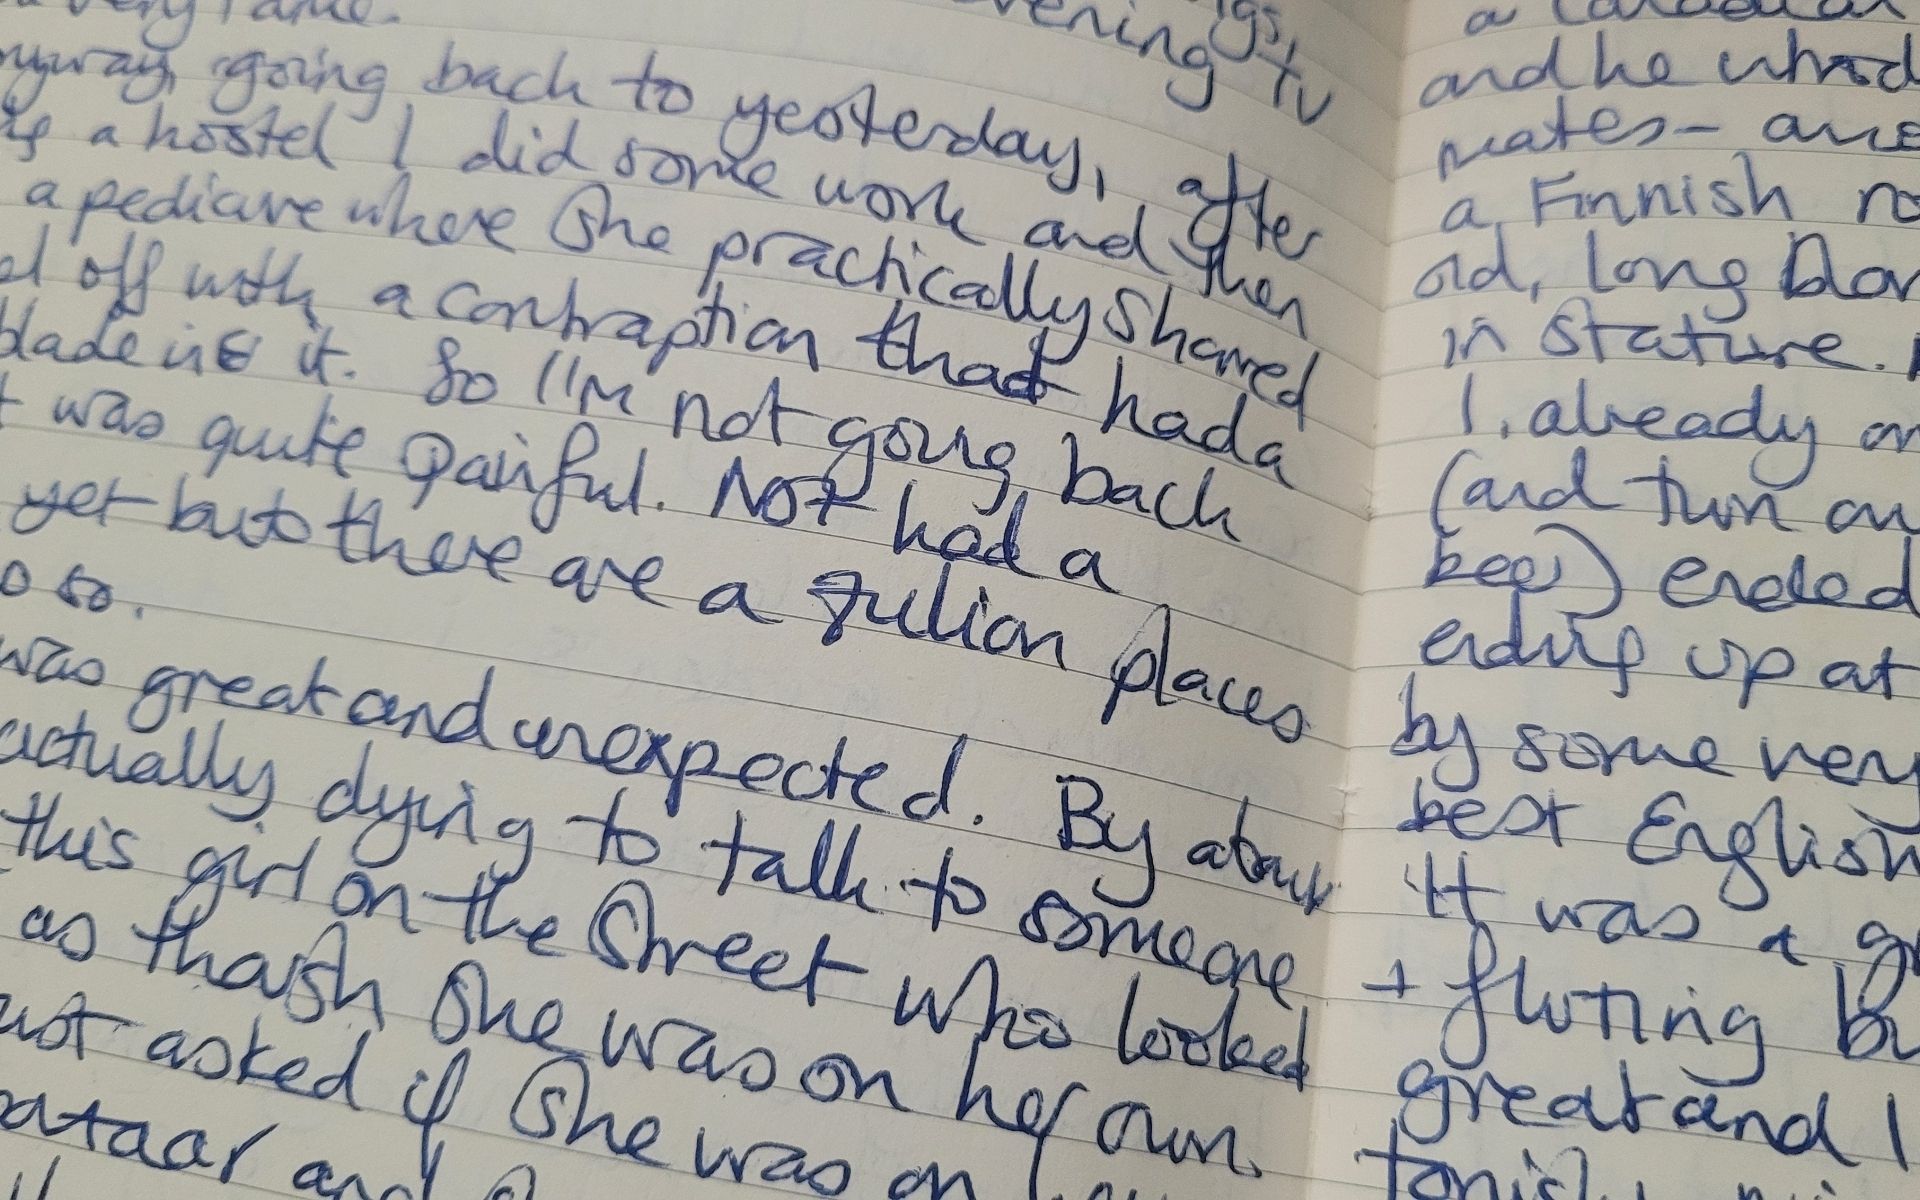 evening
going back to yesterday, after
a hostel I did some work and then
a pedicure where she practically shaved
off with a contraption that had a
blade in it. So I'm not going back
was quite painful. Not had a
yet but there are a zulion places
so.
was great and unexpected. By about
actually dying to talk to someone
this girl on the street who looked
as though she was on her own.
asked if she was on
and
and he
mates -
a Finnish
old, long
in stature.
I already
(and turn
beer) ended
ending up at
by some very
best English
It was a
+ flirting
great and I